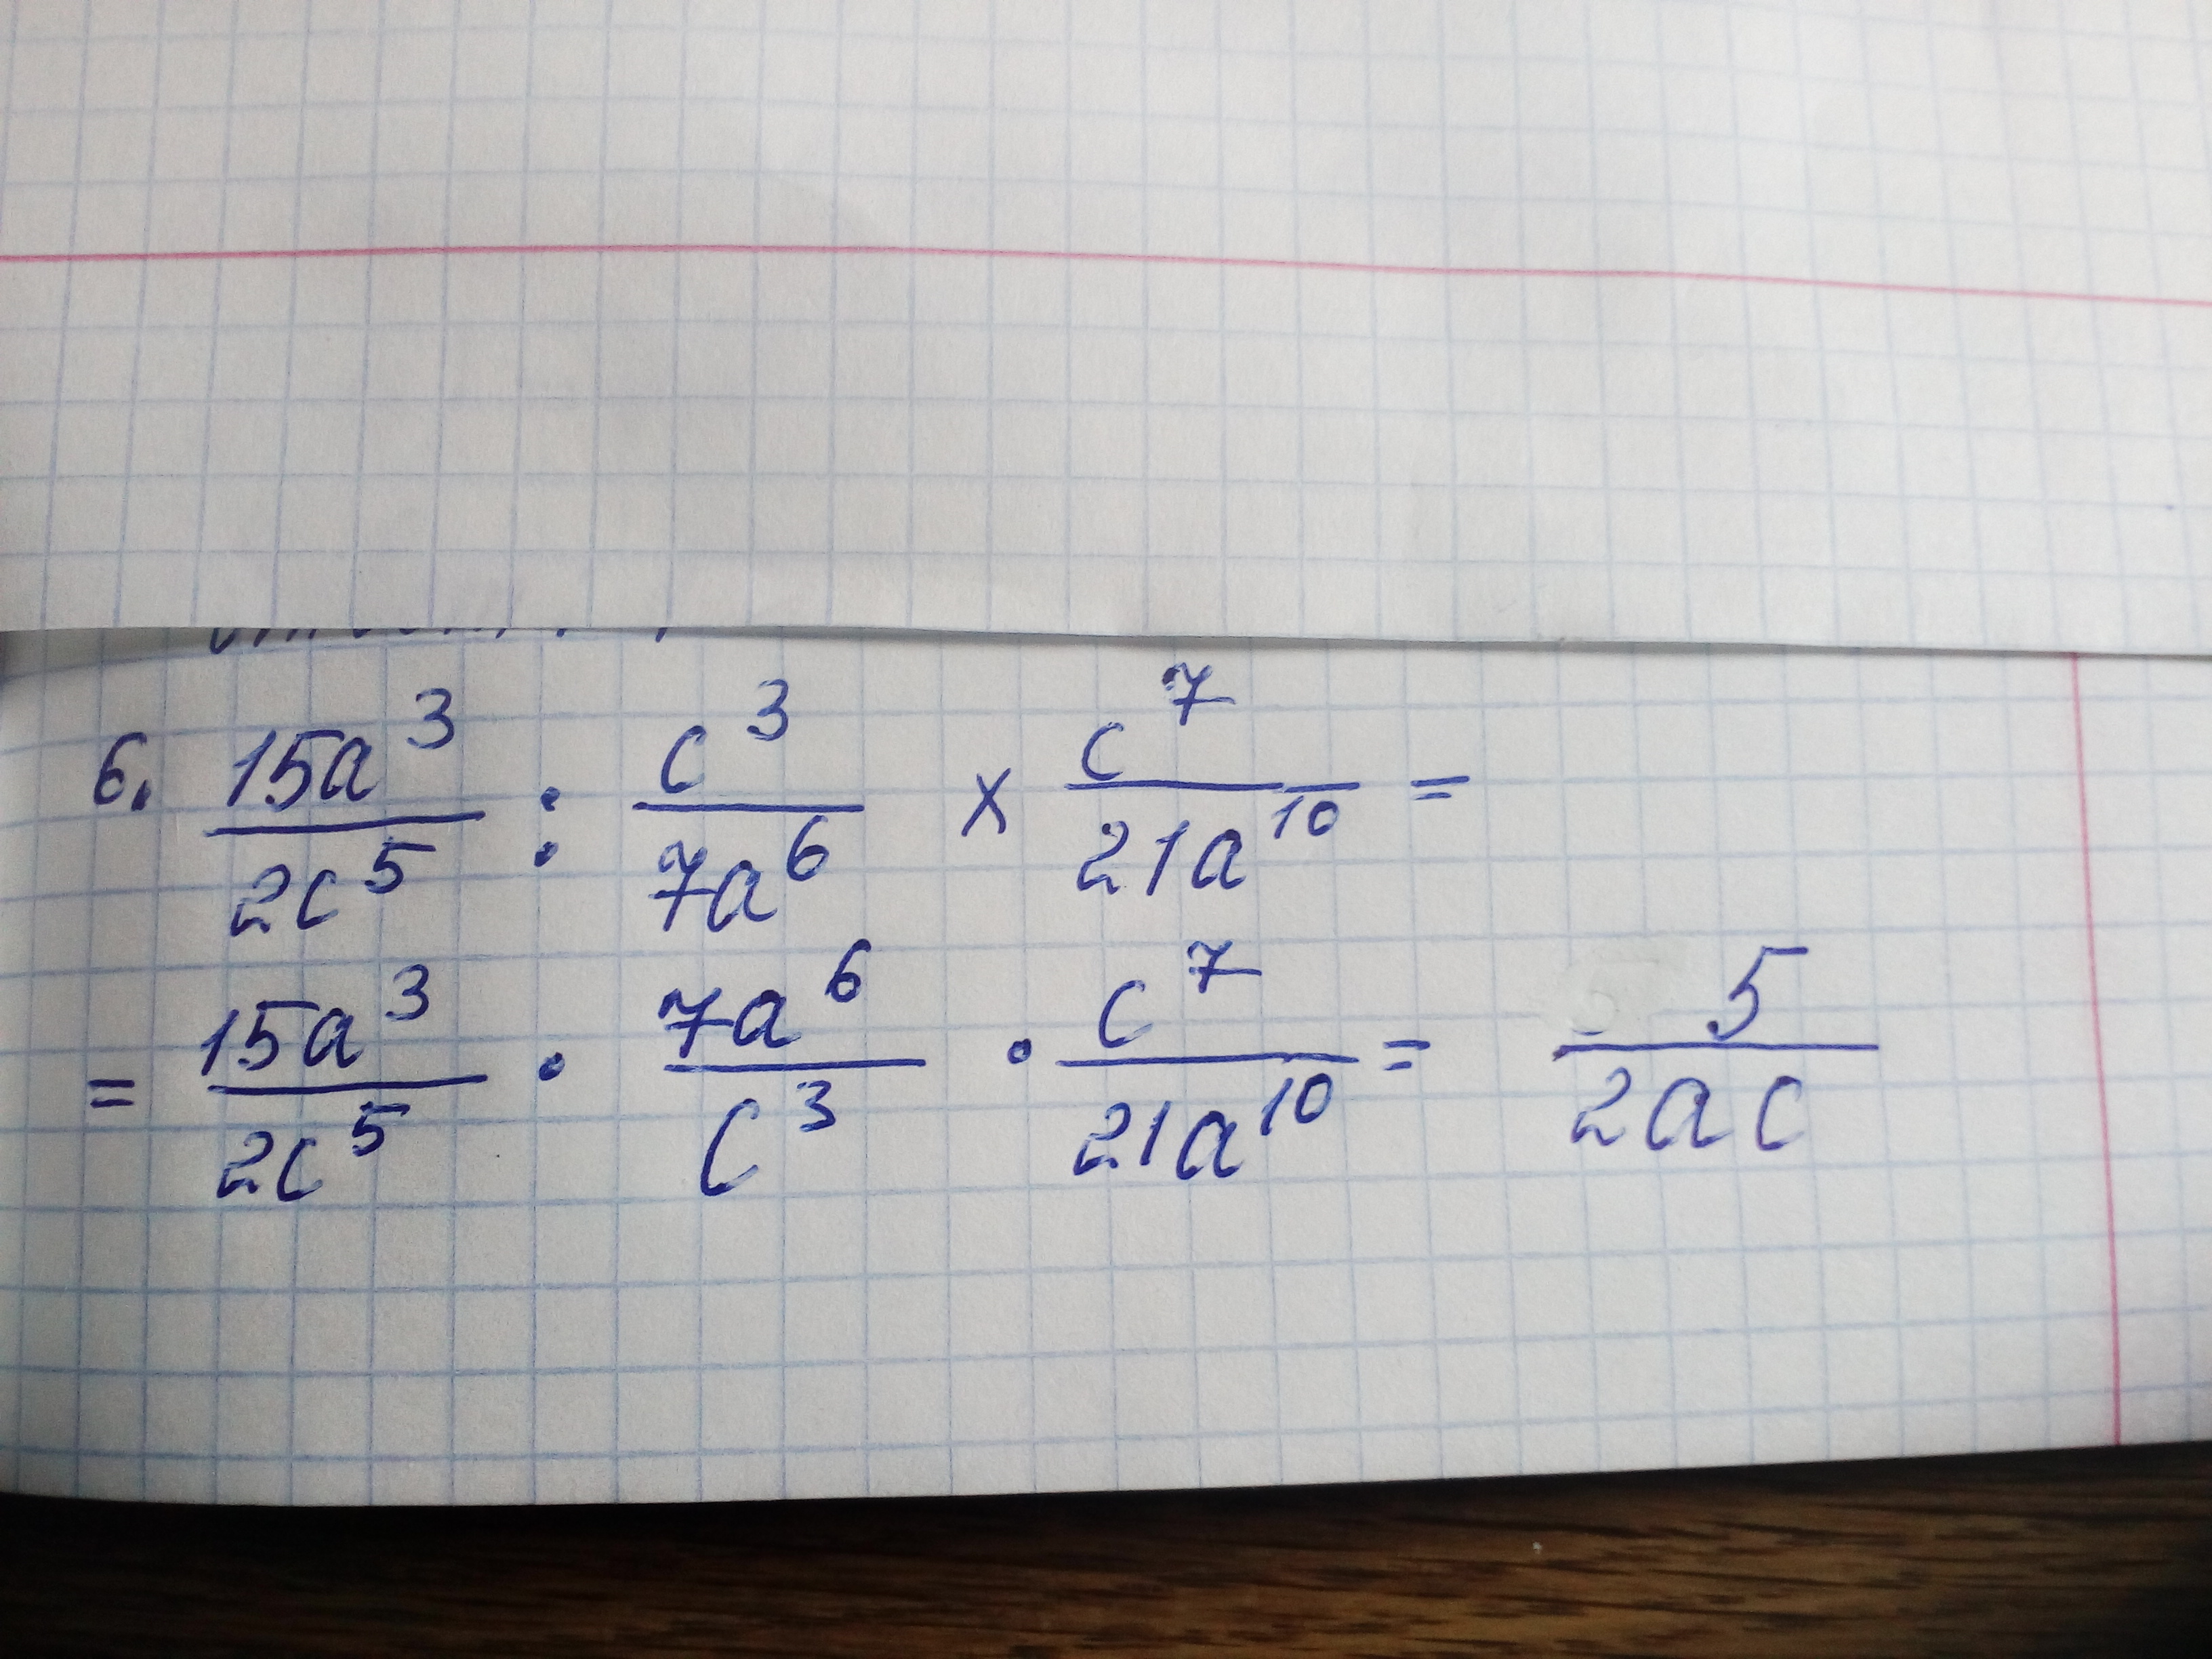 6. 15a³/2c⁵ : c³/7a⁶ × c⁷/21a¹⁰ =
= 15a³/2c⁵ · 7a⁶/c³ · c⁷/21a¹⁰ = 5/2ac